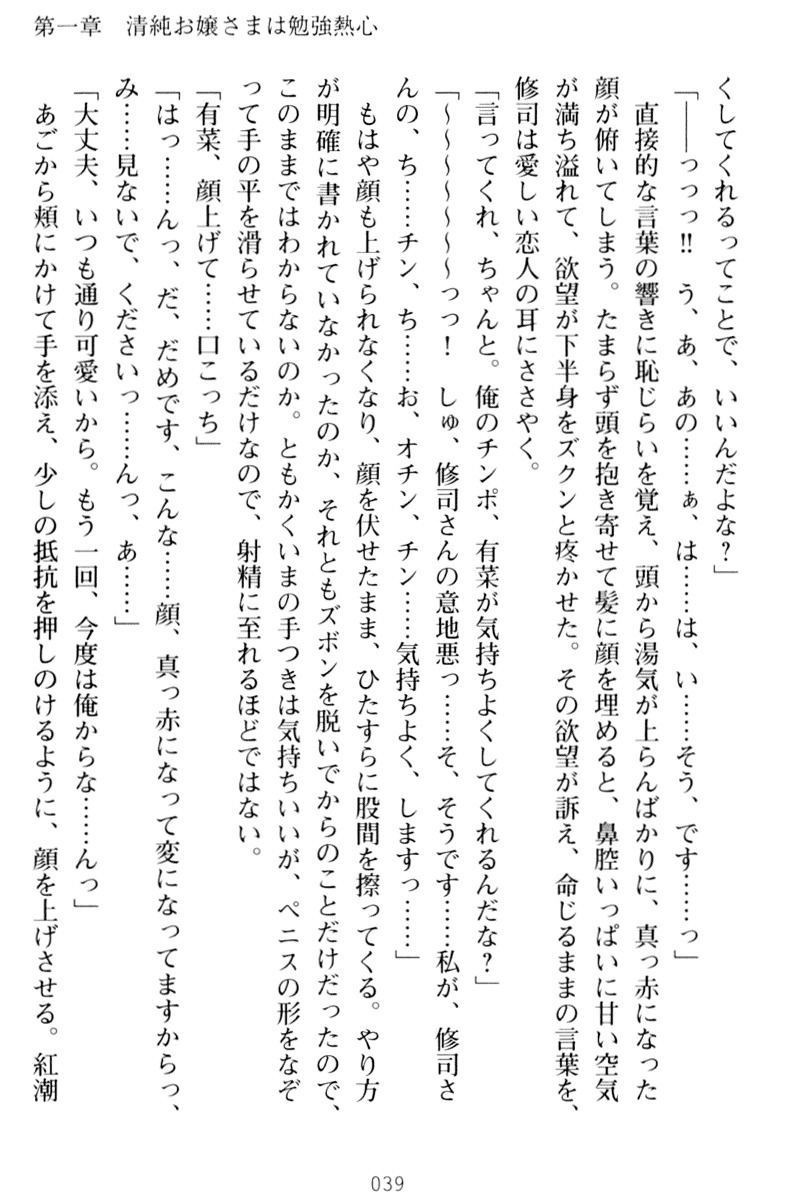 第一章　清純お嬢さまは勉強熱心
くしてくれるってことで、いいんだよな？」
「――っっっ!!　う、あ、あの……ぁ、は……は、い……そう、です……っ」
　直接的な言葉の響きに恥じらいを覚え、頭から湯気が上らんばかりに、真っ赤になった
顔が俯いてしまう。たまらず頭を抱き寄せて髪に顔を埋めると、鼻腔いっぱいに甘い空気
が満ち溢れて、欲望が下半身をズクンと疼かせた。その欲望が訴え、命じるままの言葉を、
修司は愛しい恋人の耳にささやく。
「言ってくれ、ちゃんと。俺のチンポ、有菜が気持ちよくしてくれるんだな？」
「～～～～～～っっ！　しゅ、修司さんの意地悪っ……そ、そうです……私が、修司さ
んの、ち……チン、ち……お、オチン、チン……気持ちよく、しますっ……」
　もはや顔も上げられなくなり、顔を伏せたまま、ひたすらに股間を擦ってくる。やり方
が明確に書かれていなかったのか、それともズボンを脱いでからのことだけだったので、
このままではわからないのか。ともかくいまの手つきは気持ちいいが、ペニスの形をなぞ
って手の平を滑らせているだけなので、射精に至れるほどではない。
「有菜、顔上げて……口こっち」
「はっ……んっ、だ、だめです、こんな……顔、真っ赤になって変になってますからっ、
み……見ないで、くださいっ……んっ、あ……」
「大丈夫、いつも通り可愛いから。もう一回、今度は俺からな……んっ」
　あごから頬にかけて手を添え、少しの抵抗を押しのけるように、顔を上げさせる。紅潮
039